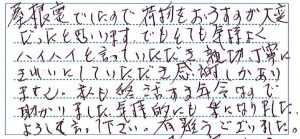 屋根裏でしたので荷物をおろすのが大変
だったと思います でもとても気持よく
ハイハイと言っていただき親切、丁寧に
きれいにしていただき感謝しかあり
ません。私も終活する年令なので
助かりました。気持的にも楽になりました。
よろしく言って下さい。有難うございました。